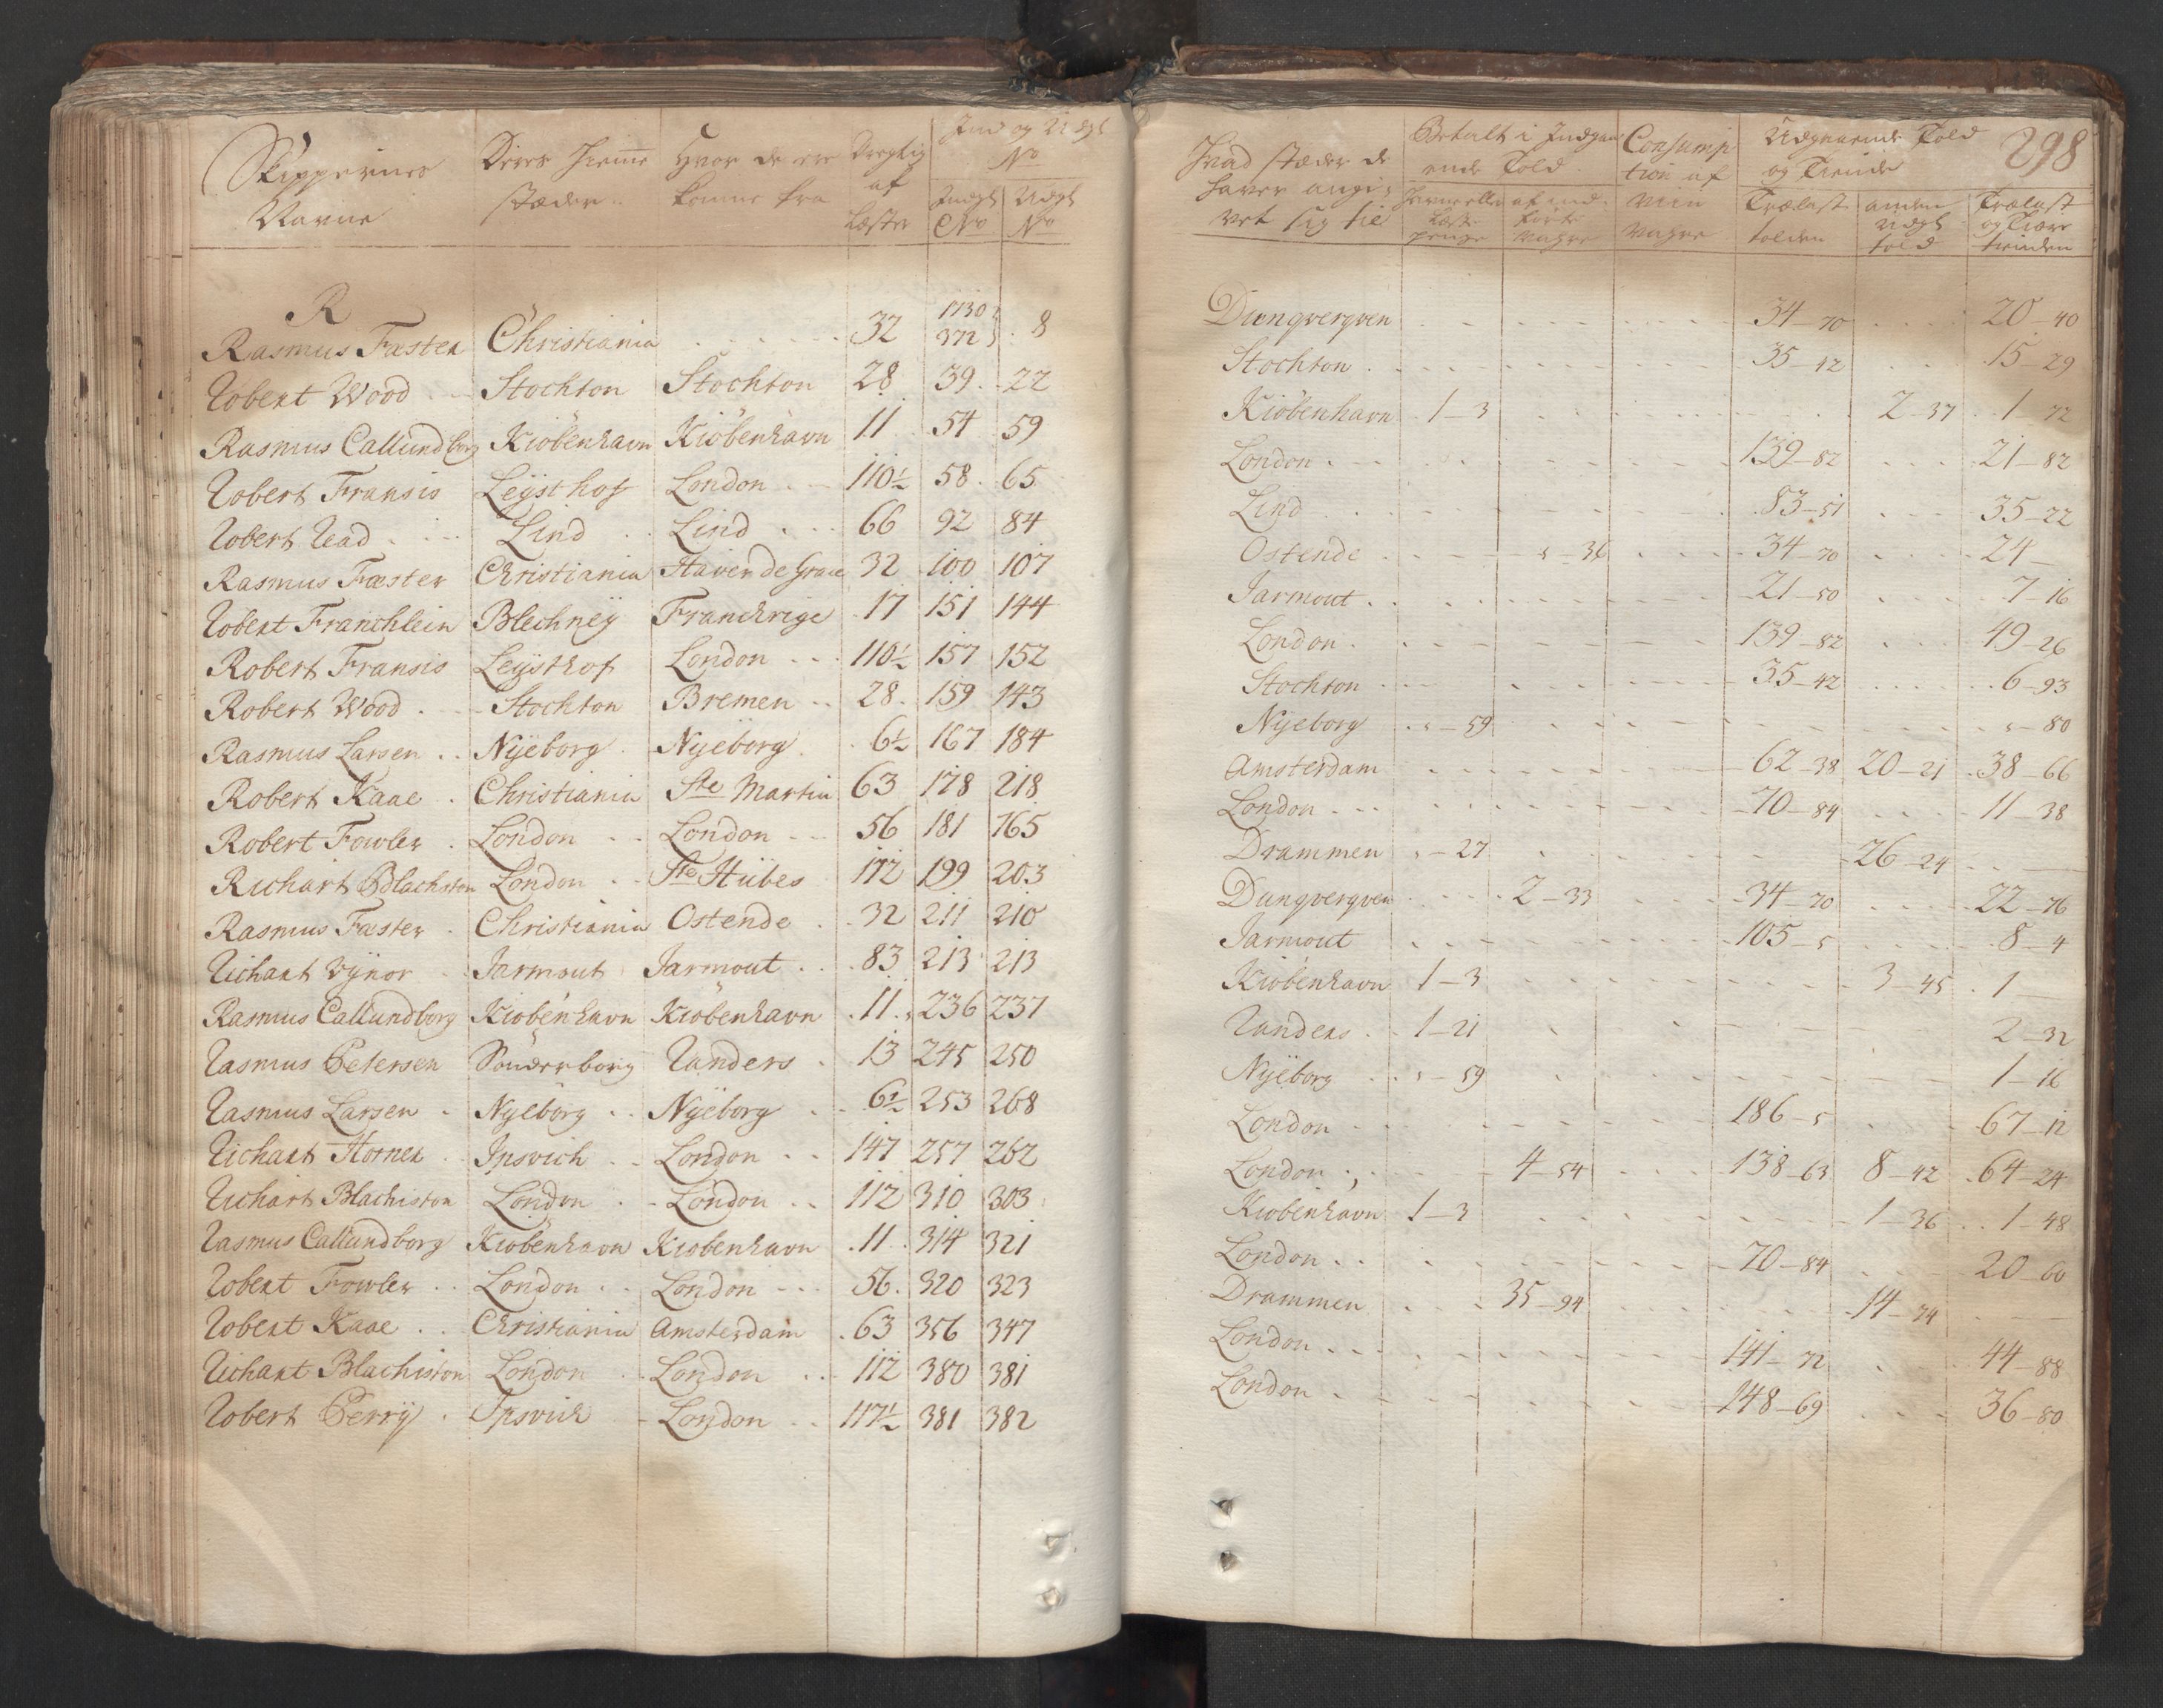 Skippernes Navne | Deres Hiemme stæder | Hvor de ere komne fra | Drægtig af Læster | Ind og Udgt No | Indgt No | Udgt No
R
Rasmus Fæster | Christiania | . . . | 32 | 1730 372 | 8
Robert Wood | Stochton | Stochton | 28 | 39 | 22
Rasmus Callundborg | Kiöbenhavn | Kiöbenhavn | 11 | 54 | 59
Robert Fransis | Leÿsthof | London | 110½ | 58 | 65
Robert Read | Lind | Lind | 66 | 92 | 84
Rasmus Fæster | Christiania | Haver de Grace | 32 | 100 | 107
Robert Franchlein | Blechneÿ | Franckrige | 17 | 151 | 144
Robert Fransis | Leÿsthof | London | 110½ | 157 | 152
Robert Wood | Stochton | Bremen | 28 | 159 | 143
Rasmus Larsen | Nÿeborg | Nÿeborg | 6½ | 167 | 184
Robert Kaae | Christiania | Ste Martin | 63 | 178 | 218
Robert Fowler | London | London | 56 | 181 | 165
Richart Blachston | London | Ste Hübes | 112 | 199 | 203
Rasmus Fæster | Christiania | Ostende | 32 | 211 | 210
Richart Vÿnor | Jarmout | Jarmout | 83 | 213 | 213
Rasmus Callundborg | Kiöbenhavn | Kiöbenhavn | 11 | 236 | 237
Rasmus Petersen | Sönderborg | Randers | 13 | 245 | 250
Rasmus Larsen | Nÿeborg | Nÿeborg | 6½ | 253 | 268
Richart Horner | Ipsvich | London | 147 | 257 | 262
Richart Blachiston | London | London | 112 | 310 | 303
Rasmus Callundborg | Kiöbenhavn | Kiöbenhavn | 11 | 314 | 321
Robert Fowler | London | London | 56 | 320 | 323
Robert Kaae | Christiania | Amsterdam | 63 | 356 | 347
Richart Blachiston | London | London | 112 | 380 | 381
Robert Perrÿ | Ipsvich | London | 117½ | 381 | 382
298
Hvad stæder de haver angivet sig til | Betalt i Indgaaende Told | Læste penge | af ind førte vahre | Consumption af Viin vahre | Udgaaende Told og Tiende | Trælast tolden | anden Udgt told | Trælast og Tiære tienden
Dungvergven | 34–70 | 20–40
Stochton | 35–42 | 15–29
Kiöbenhavn | 1–3 | 2–37 | 1–72
London | 139–82 | 21–82
Lind | 83–51 | 35–22
Ostende | „–36 | 34–70 | 24–
Jarmout | 21–50 | 7–16
London | 139–82 | 49–26
Stochton | 35–42 | 6–93
Nÿeborg | „–59 | „–80
Amsterdam | 62–38 | 20–21 | 38–66
London | 70–84 | 11–38
Drammen | „–27 | 26–24 | –
Dungvergven | 2–33 | 34–70 | 22–76
Jarmout | 105–5 | 8–4
Kiöbenhavn | 1–3 | 3–45 | 1–
Randers | 1–21 | 2–32
Nÿeborg | „–59 | 1–16
London | 186–5 | 67–12
London | 4–54 | 138–63 | 8–42 | 64–24
Kiöbenhavn | 1–3 | 1–36 | 1–48
London | 70–84 | 20–60
Drammen | 35–94 | 14–74 | –
London | 141–72 | 44–88
London | 148–69 | 36–80